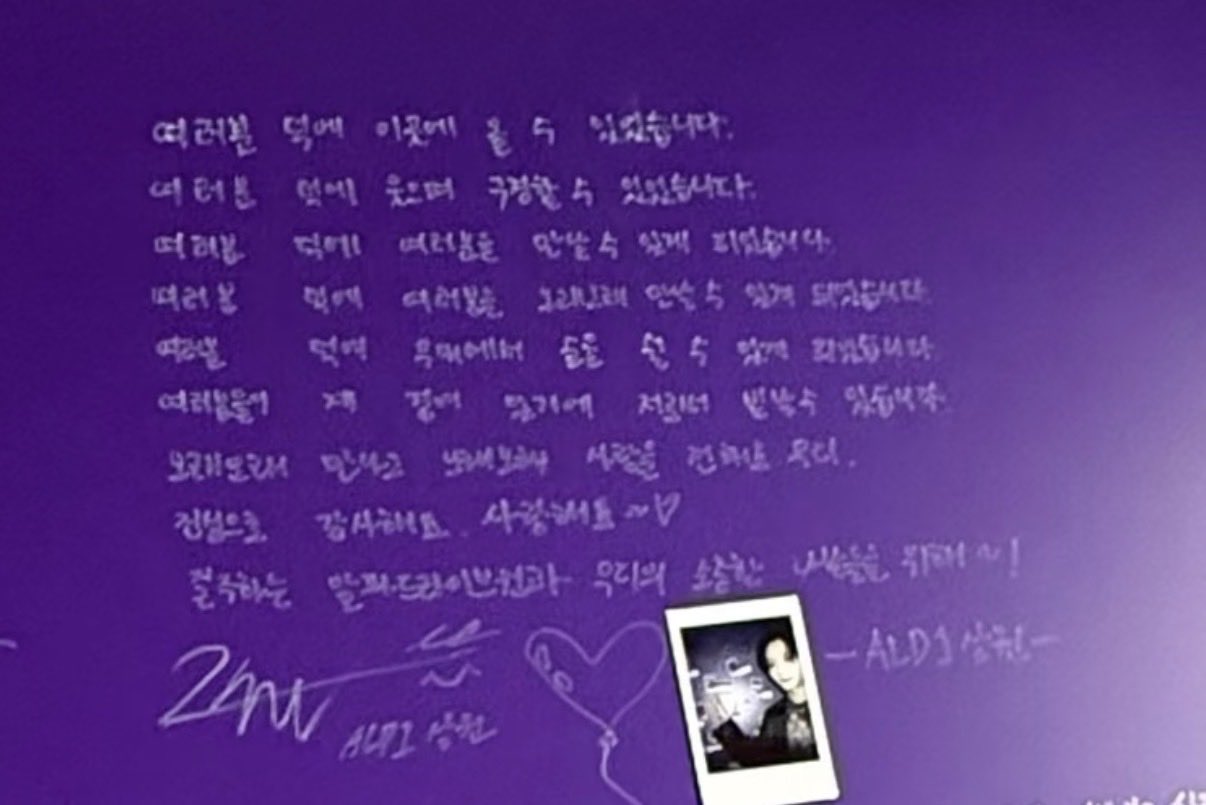 여러분 덕에 이곳에 올 수 있었습니다.
여러분 덕에 웃으며 구경할 수 있었습니다.
여러분 덕에 여러분을 만날 수 있게 되었습니다.
여러분 덕에 여러분을 오래오래 만날 수 있게 되었습니다.
여러분 덕에 무대에서 숨을 쉴 수 있게 되었습니다.
여러분들이 제 곁에 있기에 저로서 빛날 수 있습니다.
오래오래 만나고 오래오래 사랑을 전해요 우리.
진심으로 감사해요. 사랑해요~♡
질주하는 알파드라이브원과 우리의 소중한 나날들을 위해~!
-ALD1 상원-
ALD1 상원